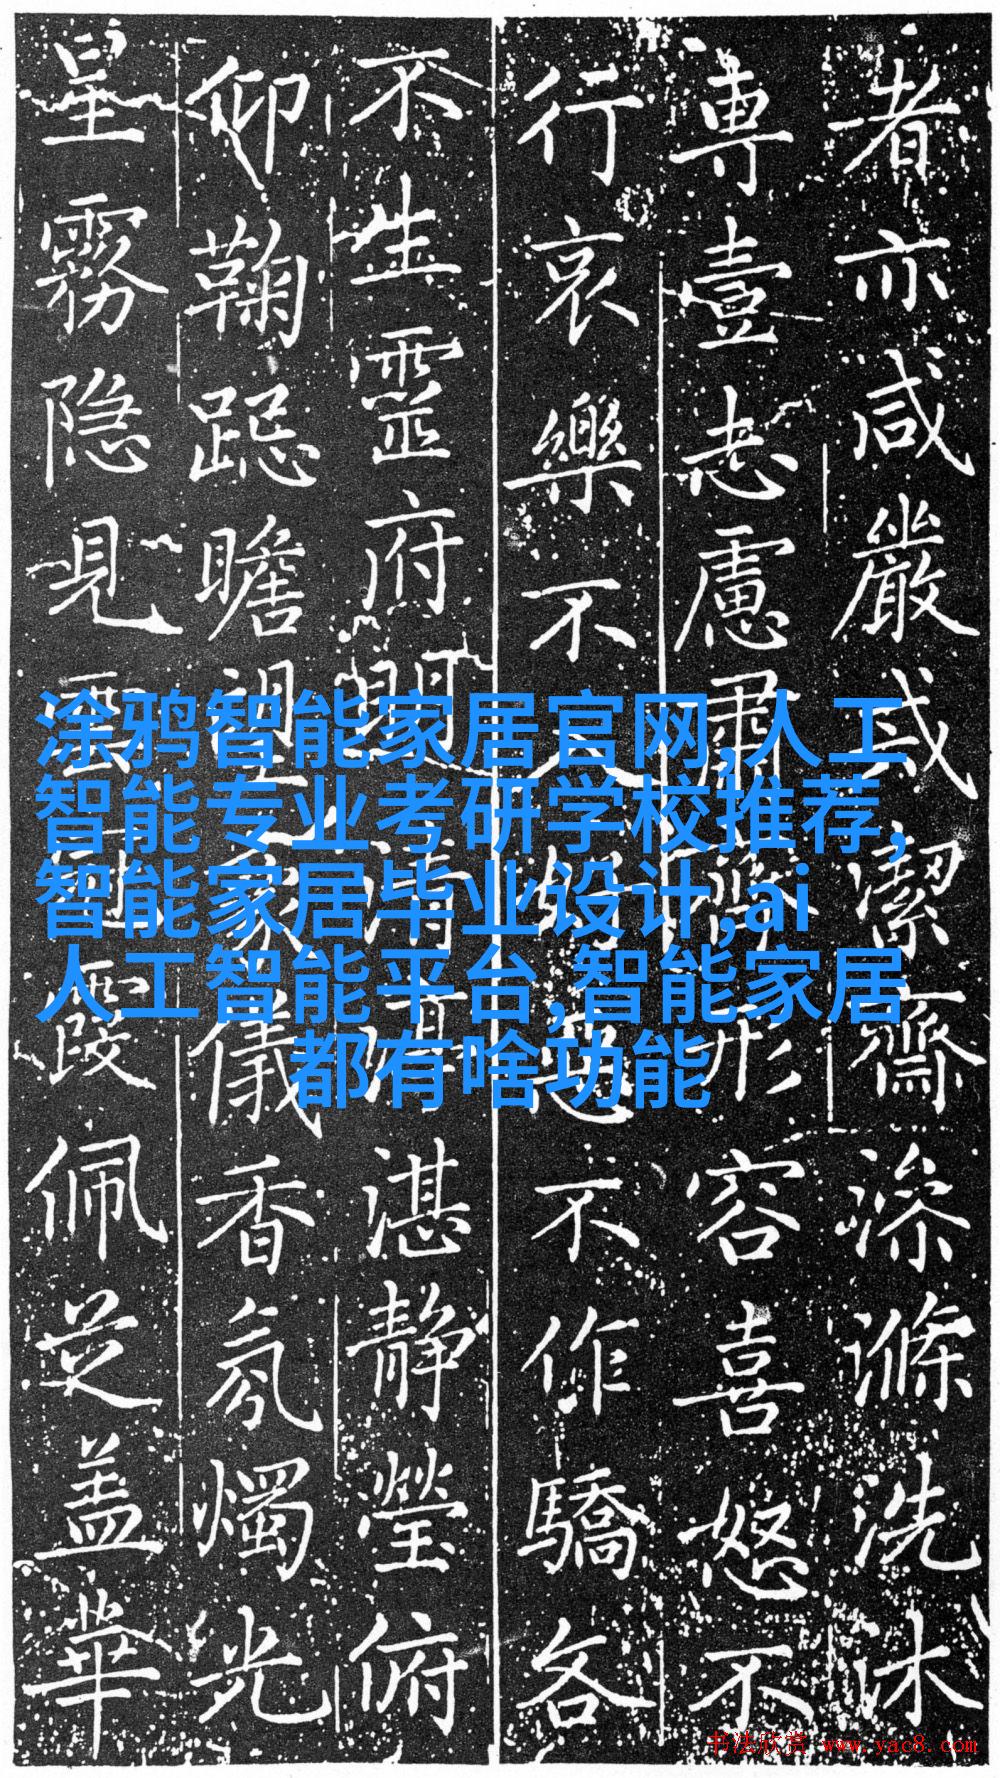 者亦咸嚴戒潔齋滌洗沐
專壹志慮肅形容喜怒不
行哀樂不入不作驕各
不生靈府清湛靜瑩俯
仰鞠跽瞻望象儀香氛燭光
星霧隐見雲冠霞佩芝蓋華
涂鸦智能家居官网,人工
智能专业考研学校推荐,
智能家居毕业设计,ai
人工智能平台,智能家居
都有啥功能
书法欣赏 www.yac8.com